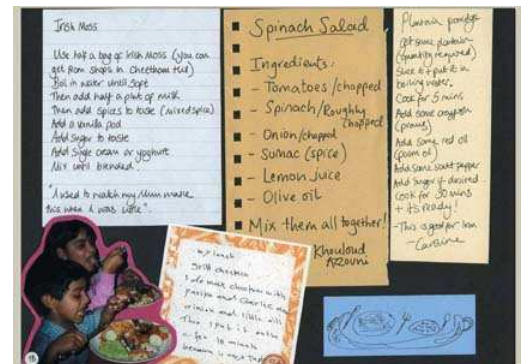 Irish Moss
Use half a bag of Irish Moss (you can
get from shops in Cheetham Hill)
Boil in water until soft
Then add half a pint of milk
Then add spices to taste (mixed spice)
Add a vanilla pod
Add sugar to taste
Add single cream or yoghurt
Mix until blended
"I used to watch my Mum make
this when I was little".
Spinach Salad
Ingredients:
- Tomatoes/chopped
- Spinach/Roughly chopped
- Onion/chopped
- Sumac (spice)
- Lemon juice
- Olive oil
Mix them all together!
Khouloud
Azzouni
Plantain porridge
get some plantain
(quantity required)
slice it + put it in
boiling water.
Cook for 5 mins
Add some crayfish
(prawns)
Add some red oil
(palm oil)
Add some salt + pepper
Add sugar if desired
Cook for 30 mins
+ it's ready!
- This is good for Iron
- Caroline
my lunch
Grill chicken
chicken with
and
and little oil
This I put it
for 10 minutes